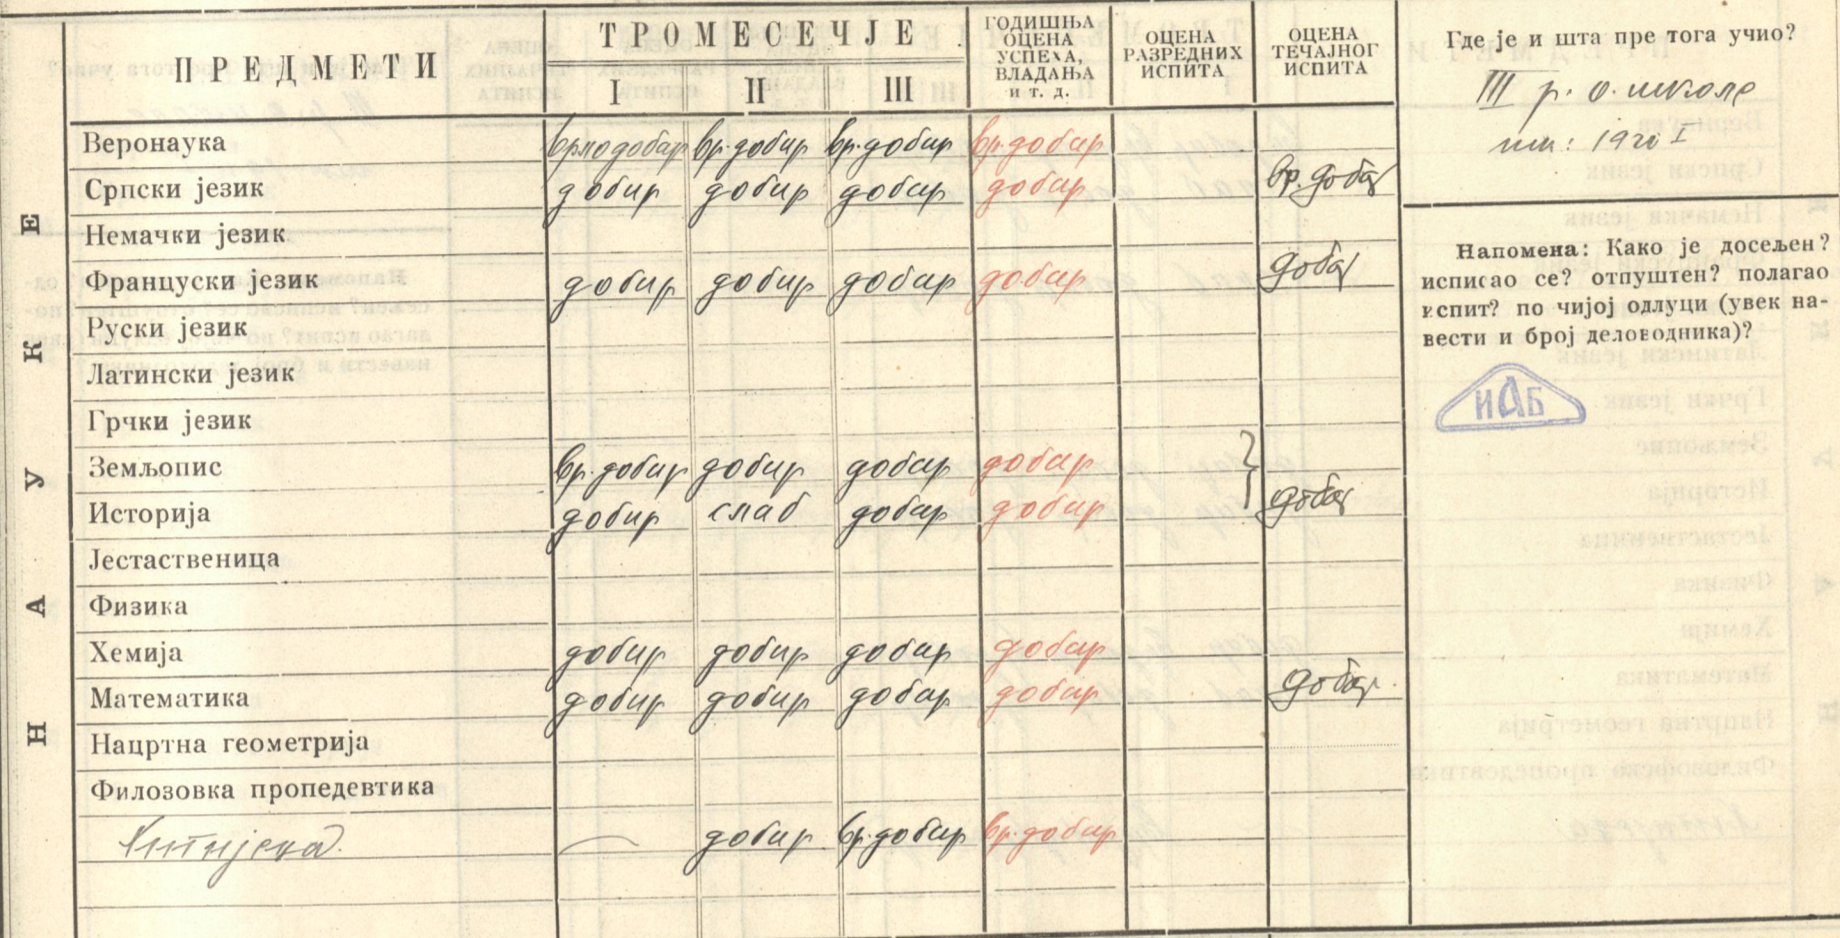 ПРЕДМЕТИ
ТРОМЕСЕЧЈЕ
I II III
ГОДИШЊА ОЦЕНА УСПЕХА, ВЛАДАЊА и т. д.
ОЦЕНА РАЗРЕДНИХ ИСПИТА
ОЦЕНА ТЕЧАЈНОГ ИСПИТА
Где је и шта пре тога учио?
III р. о. школе
1920
НАУКЕ
Веронаука врлодобар вр.добар вр.добар вр.добар
Српски језик добар добар добар добар вр.добар
Немачки језик
Француски језик добар добар добар добар добар
Руски језик
Латински језик
Грчки језик
Земљопис вр.добар добар добар добар
Историја добар слаб добар добар добар
Јестаственица
Физика
Хемија добар добар добар добар
Математика добар добар добар добар добар
Нацртна геометрија
Филозовка пропедевтика
Хигијена — добар вр.добар вр.добар
Напомена: Како је досељен?
исписао се? отпуштен? полагао
испит? по чијој одлуци (увек на-
вести и број деловодника)?
ИАБ